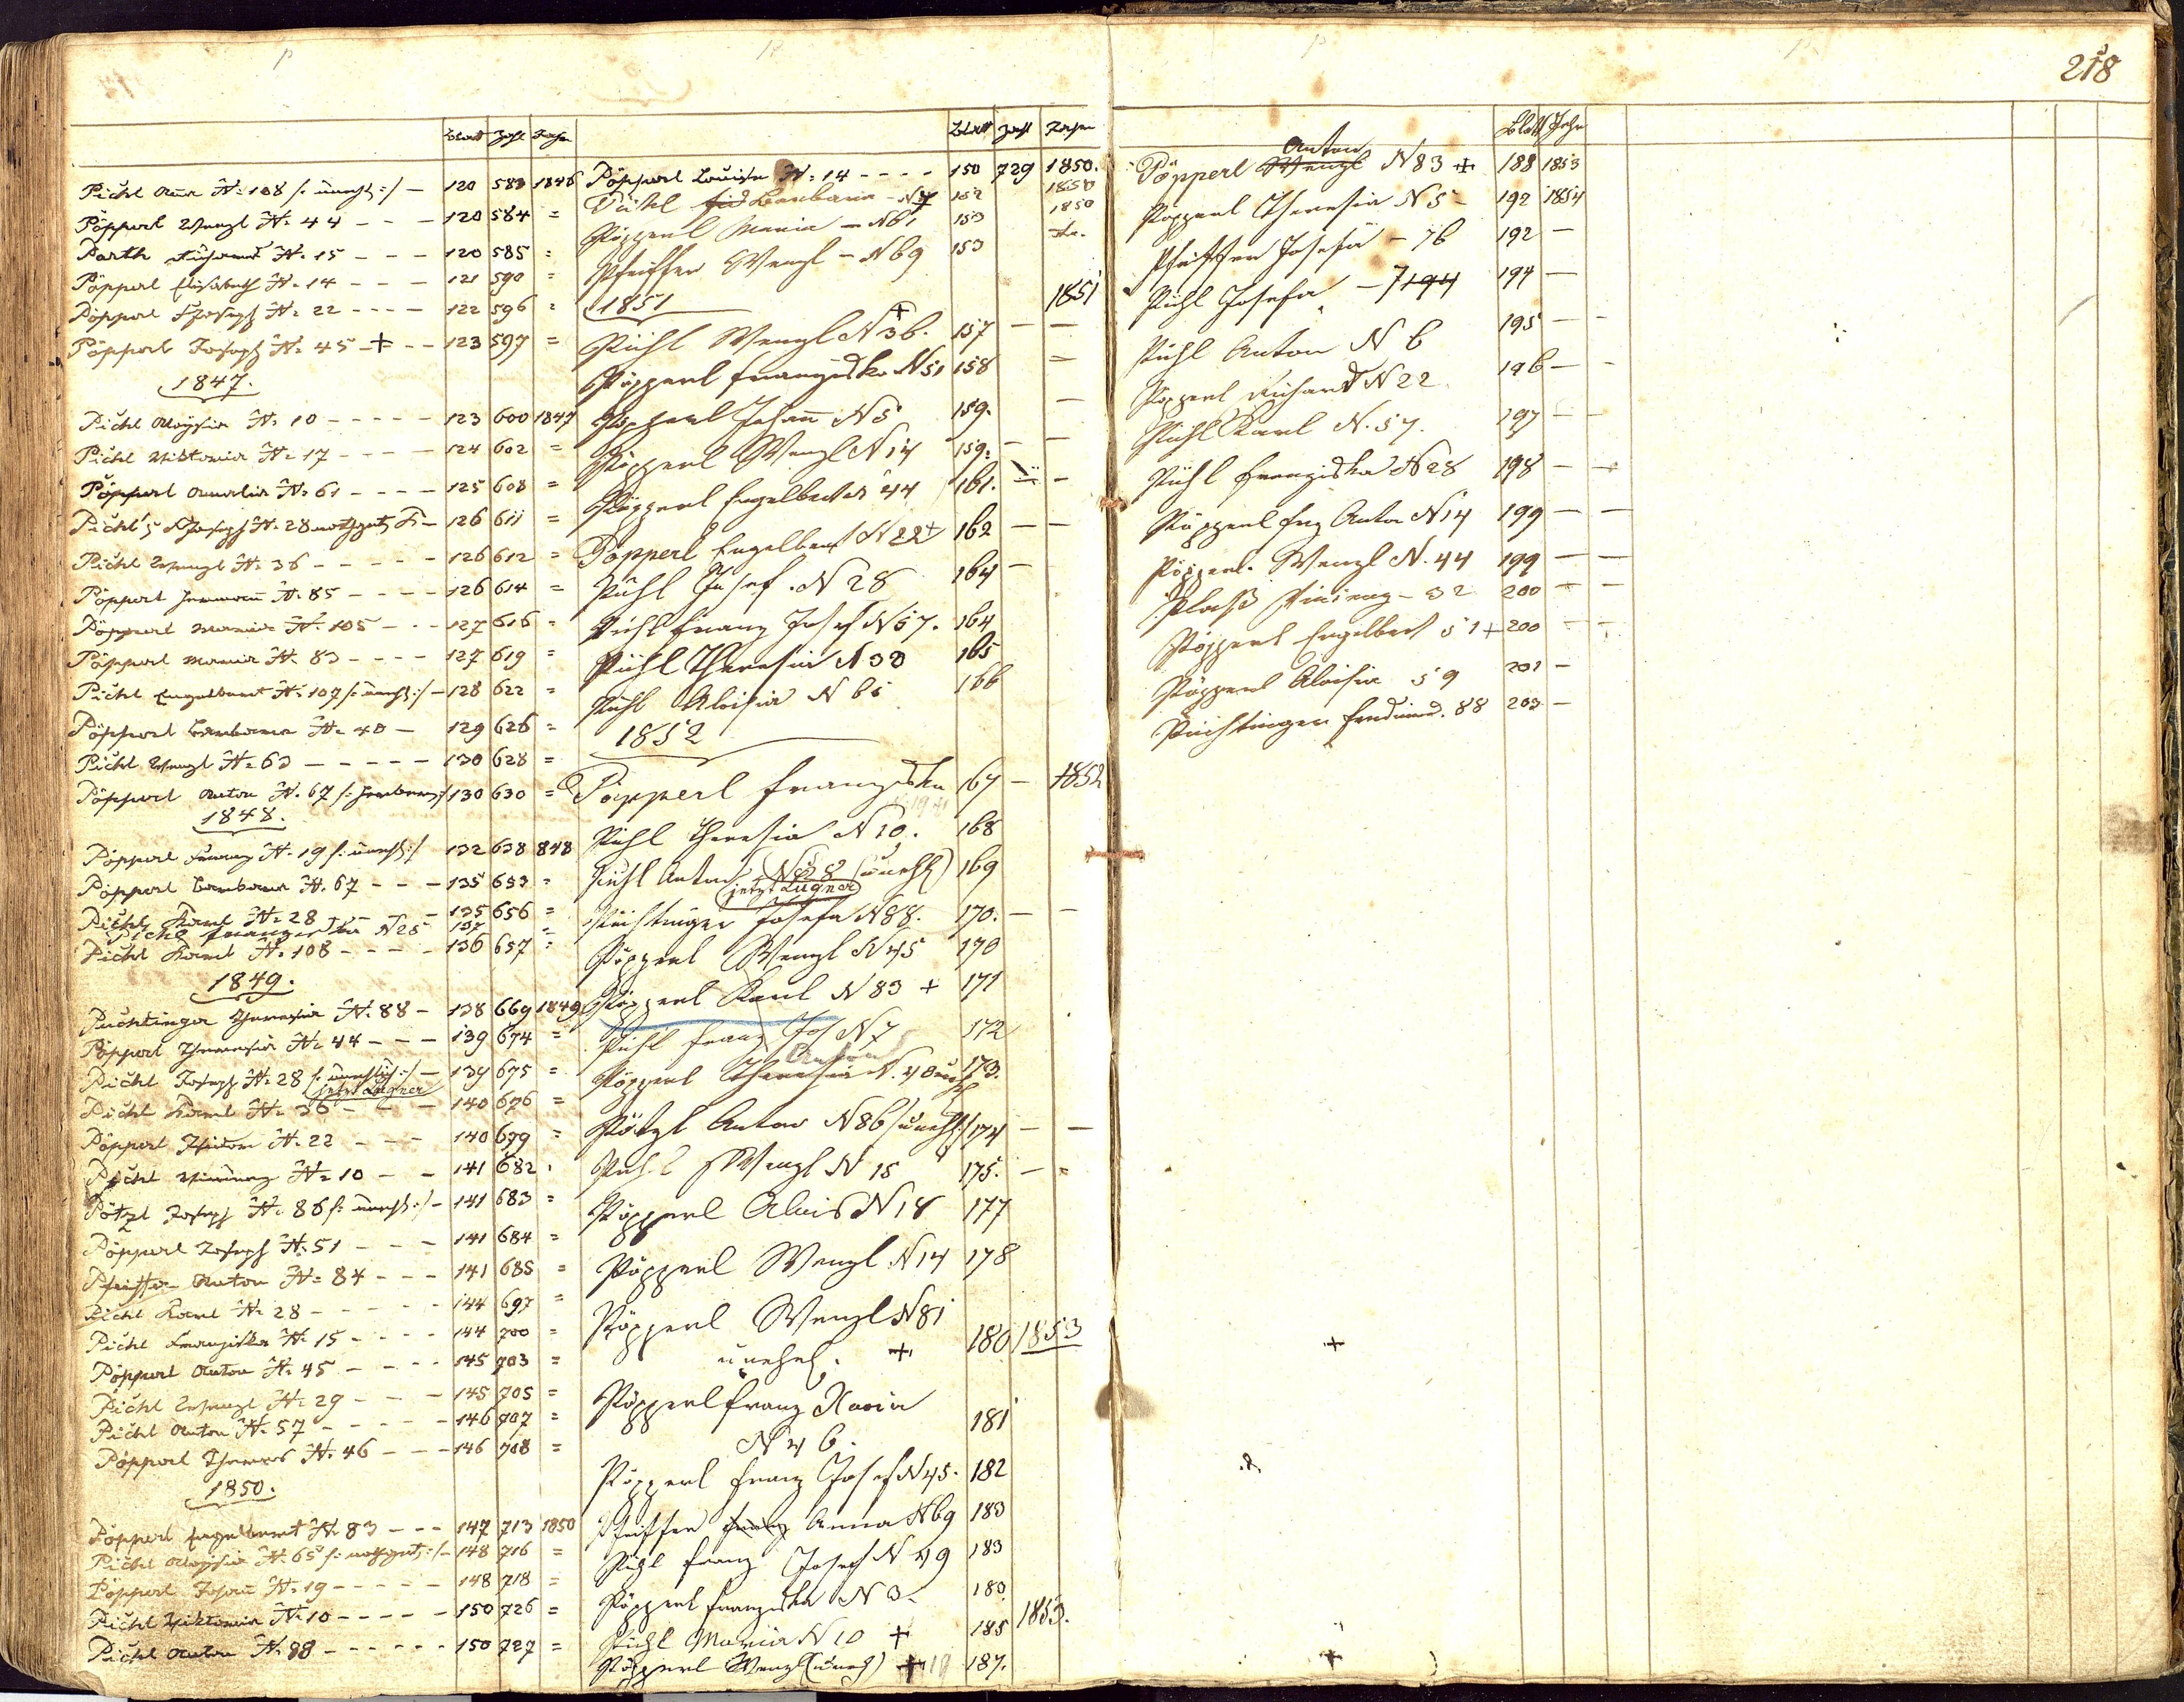 218
Blatt Zahl Jahr
Pichl Anna N. 108 /: unehl :/ - 120 583 1846
Pöpperl Wenzl N. 44 - - - 120 584 =
Parth N. 15 - - - 120 585 =
Pöpperl Elisabeth N. 14 - - - 121 590 =
Pöpperl Joseph N. 22 - - - - 122 596 =
Pöpperl Joseph N. 45 + - - 123 597 =
1847.
Pichl Aloysia N. 10 - - - - - 123 600 1847
Pichl Viktoria N. 17 - - - - 124 602 =
Pöpperl Amalia N. 61 - - - - 125 608 =
Pichl Joseph N. 28 - 126 611 =
Pichl Wenzl N. 36 - - - - - 126 612 =
Pöpperl Hermann N. 85 - - - - 126 614 =
Pöpperl Maria N. 105 - - - 127 616 =
Pöpperl Maria N. 83 - - - - 127 619 =
Pichl Engelbert N. 107 /: unehl :/ - 128 622 =
Pöpperl Barbara N. 40 - 129 626 =
Pichl Wenzl N. 63 - - - - - 130 628 =
Pöpperl Anton N. 67 130 630 =
1848.
Pöpperl Franz N. 19 /: unehl :/ 132 638 848
Pöpperl Barbara N. 67 - - - 135 653 =
Pichl Karl N. 28 - - 135 656 =
Pichl Franziska N 25 137 =
Pichl Karl N. 108 - - - - 136 657 =
1849.
Puchtinger Theresia N. 88 - 138 669 1849
Pöpperl Theresia N. 44 - - - 139 674 =
Pichl Joseph N. 28 /: unehlich :/ - 139 675 =
jetzt Lugner
Pichl Karl N. 36 - - - 140 676 =
Pöpperl Isidor N. 22 - - - 140 679 =
Pichl Vinzenz N. 10 - - 141 682 =
Pötzl Joseph N. 86 /: unehl :/ - 141 683 =
Pöpperl Joseph N. 51 - - - 141 684 =
Pfeiffer Anton N. 84 - - - 141 685 =
Pichl Karl N. 28 - - - - - 144 697 =
Pichl Franziska N. 15 - - - - 144 700 =
Pöpperl Anton N. 45 - - - - 145 703 =
Pichl Wenzl N. 29 - - - 145 705 =
Pichl Anton N. 57 - - - - - 146 707 =
Pöpperl Thomas N. 46 - - - 146 708 =
1850.
Pöpperl Engelbert N. 83 - - - 147 713 1850
Pichl Aloysia N. 65 - 148 716 =
Pöpperl Johann N. 19 - - - - - 148 718 =
Pichl Viktoria N. 10 - - - - - 150 726 =
Pichl Anton N. 88 - - - - - - 150 727 =
Blatt Zahl Jahr
Pöpperl Louisa N. 14 - - - - 150 729 1850.
Pichl Barbara - N 7 152 1850
Pöpperl Maria - N 61 153 1850
Pfeiffer Wenzl - N 69 153
1851 1851
Pichl Wenzl N 36. + 157 - -
Pöpperl Franziska N 51 158 =
Pöpperl Johann N 5 159. -
Pöpperl Wenzl N 14 159. - -
Pöpperl Engelbert N 44 161. -
Pöpperl Engelbert N 22 + 162 - -
Pichl Josef . N 28 164 -
Pichl Franz Josef N 57. 164
Pichl Theresia N 38 165
Pichl Aloisia N 61 166
1852
Pöpperl Franziska 167 - 1852
Pichl Theresia N 10. 168
Pichl Anton N 88 (unehl) 169
jetzt Lugner
Püchtinger Josefa N 88. 170. - -
Pöpperl Wenzl N 45 170
Pöpperl Karl N 83 + 171
Pichl Franz Jos N 7 172
Anton
Pöpperl Theresia N. 40 173.
Pötzl Anton N 86 /unehl:/ 174 - -
Pichl Wenzl N 15 175. - =
Pöpperl Alois N 18 177
Pöpperl Wenzl N 14 178
Pöpperl Wenzl N 81
unehel. + 180 1853
Pöpperl Franz Xavia
N 46. 181
Pöpperl Franz Josef N 45. 182
Pfeiffer Franz Anna N 69 183
Pichl Franz Josef N 49 183
Pöpperl Franziska N 3. 183
Pichl Maria N 10 + 185 1853.
Pöpperl Wenzl (uneh) + 19 187.
Blatt Jahr
Anton
Pöpperl Wenzl N 83 + 188 1853
Pöpperl Theresia N 5 - 192 1854
Pfeiffer Josefa - 76 192 -
Pichl Josefa - 7 194 194 -
Pichl Anton N 6 195 - -
Pöpperl Richard N 22. 196 - -
Pichl Karl N. 57. 197 - -
Pichl Franziska N 28 198 - -
Pöpperl Anton N 14 199 - -
Pöpperl. Wenzl N. 44 199 - -
Plaß Vinzenz - 32 200 - -
Pöpperl Engelbert 51 + 200 - -
Pöpperl Aloisia 59 201 -
Püchtinger Ferdinand. 88 203 -